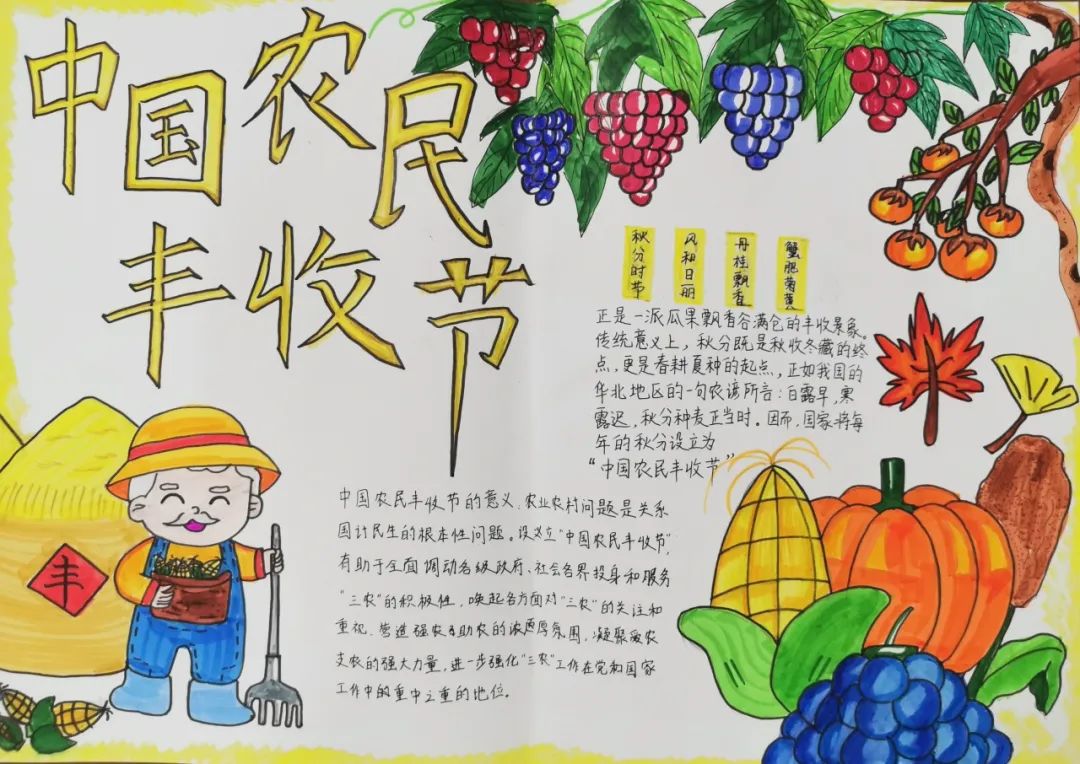 中国农民
丰收节
秋分时节
风和日丽
丹桂飘香
蟹肥菊黄
正是一派瓜果飘香谷满仓的丰收景象。
传统意义上，秋分既是秋收冬藏的终
点，更是春耕夏种的起点，正如我国的
华北地区的一句农谚所言：白露早，寒
露迟，秋分种麦正当时。因而，国家将每
年的秋分设立为
“中国农民丰收节”
中国农民丰收节的意义，农业农村问题是关系
国计民生的根本性问题。设立“中国农民丰收节”，
有助于全面调动各级政府、社会各界投身和服务
“三农”的积极性，唤起各方面对“三农”的关注和
重视，营造强农助农的浓厚氛围，凝聚爱农
支农的强大力量，进一步强化“三农”工作在党和国家
工作中的重中之重的地位。
丰